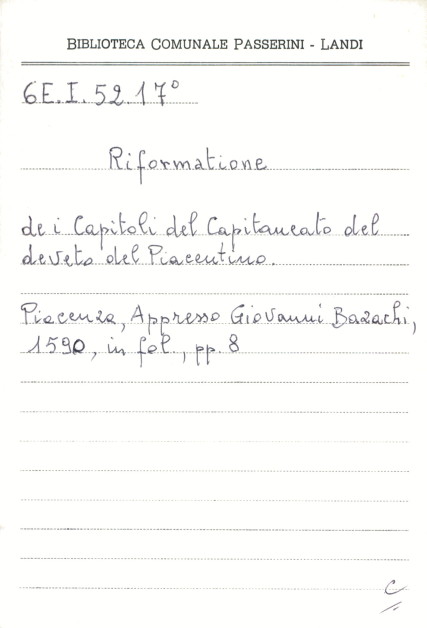 BIBLIOTECA COMUNALE PASSERINI - LANDI
6E.I.52.17°
Riformatione
de i Capitoli del Capitaneato del
deveto del Piacentino.
Piacenza, Appresso Giovanni Bazachi,
1590, in fol., pp. 8
C